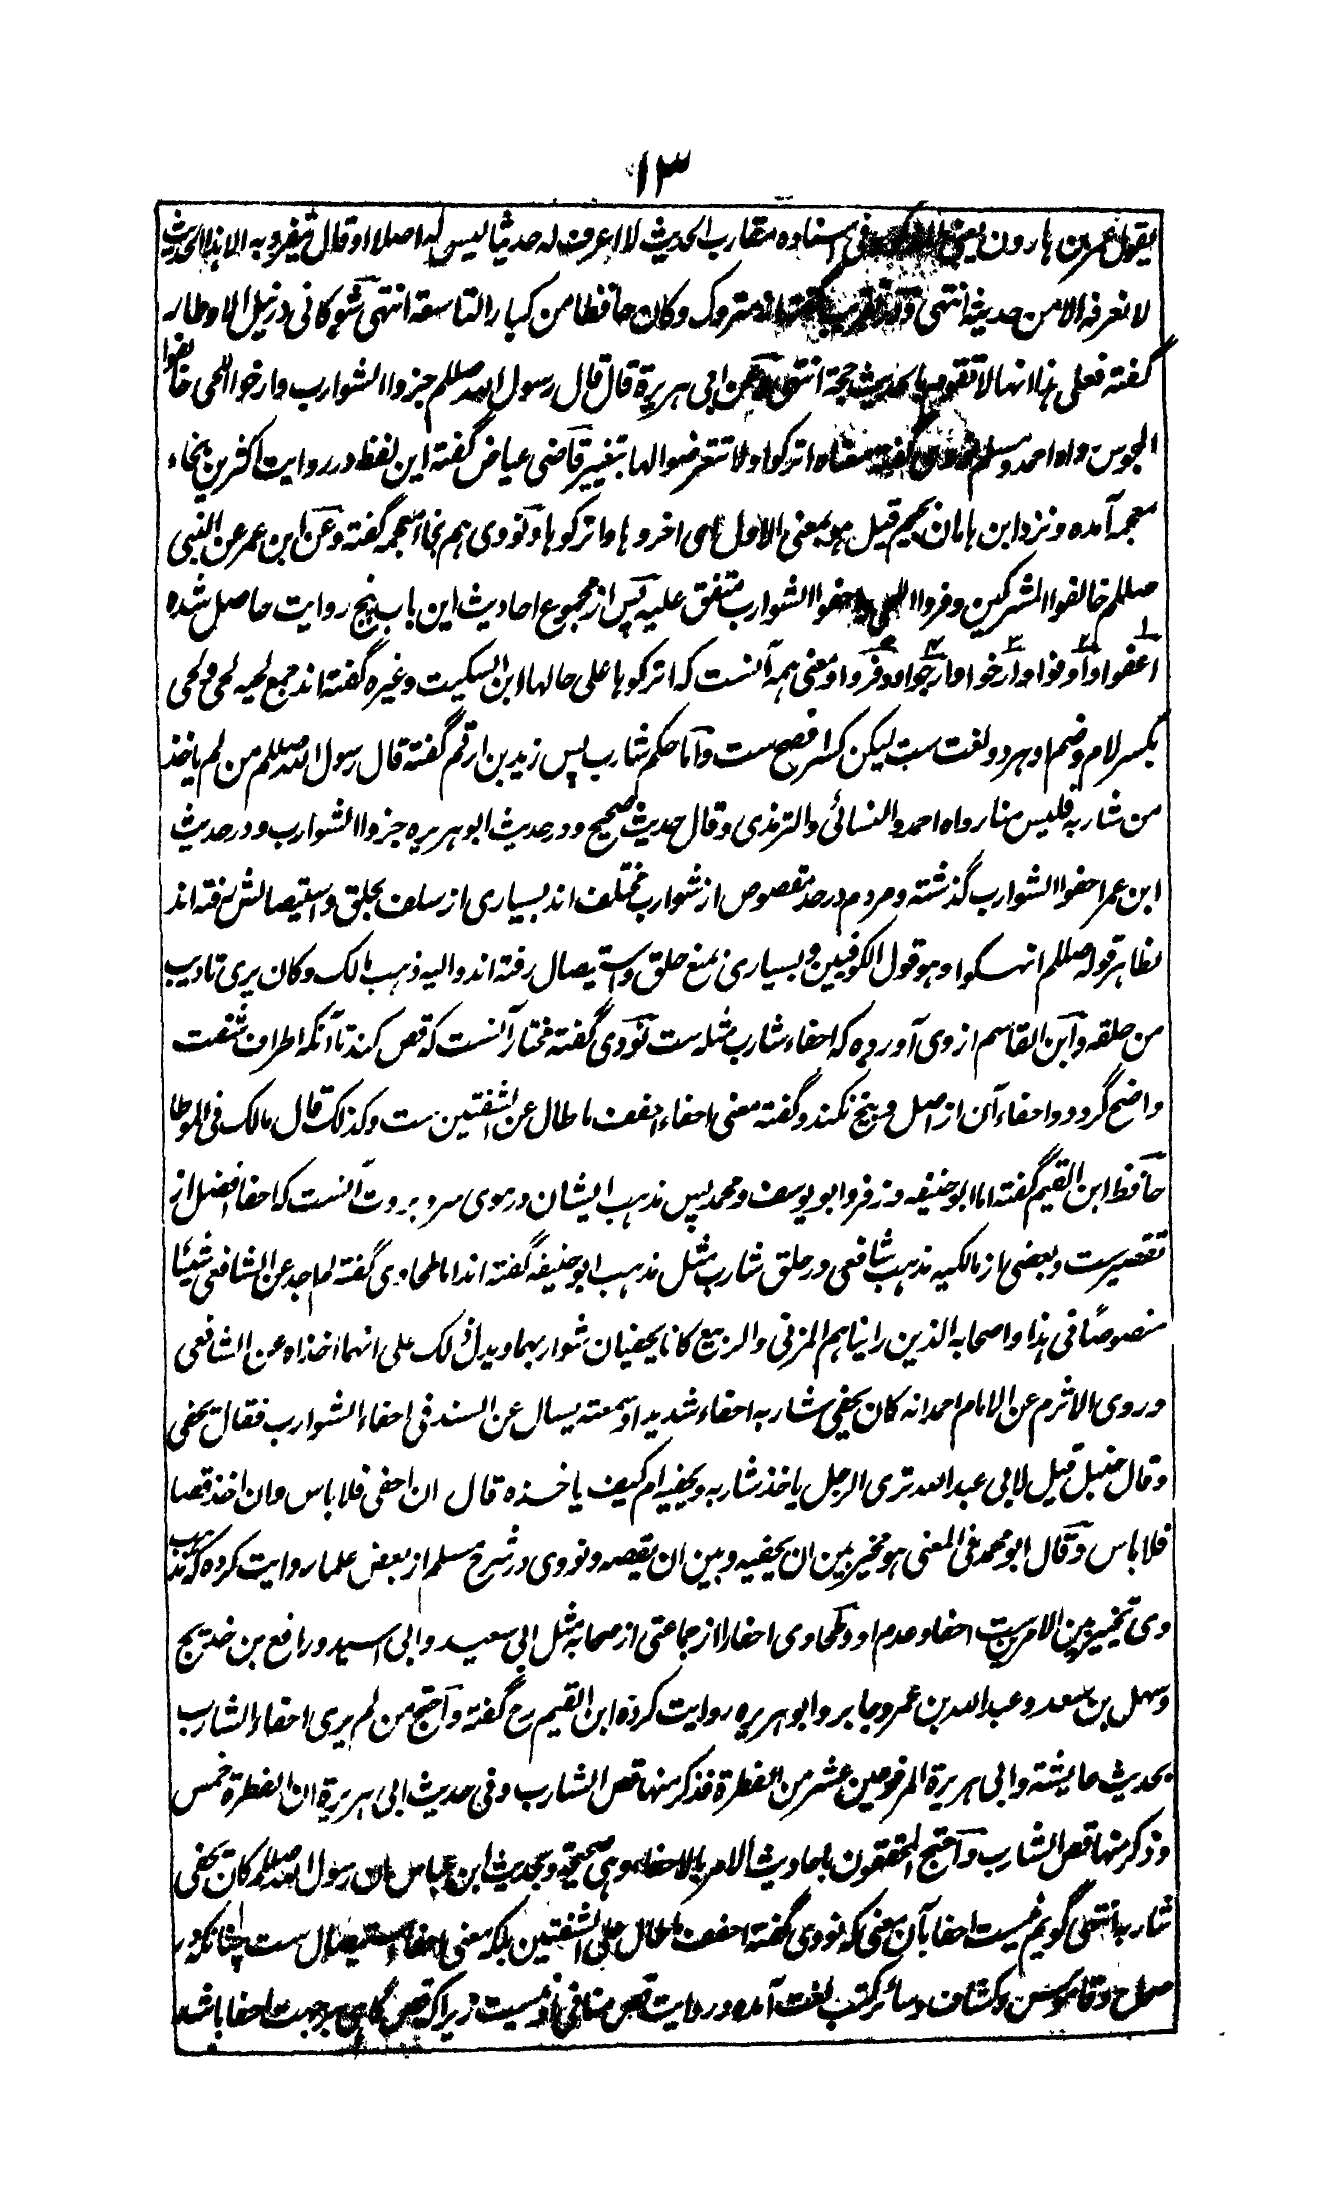 ١٣
يقول عمر بن هارون يعني المذكور في اسناده مقارب الحديث لا اعرف له حديثا ليس له اصلا او قال ينفرد به الا هذا الحديث
لا نعرفه الا من حديثه انتهى متروك وكان حافظا من كبار التاسعة انتهى شوكانى در نيل الاوطار
گفته فعلى هذا انها لا تقوم بالحديث حجة انتهى وعن ابى هريرة قال قال رسول الله صللم جزوا الشوارب وارخوا اللحى خالفوا
المجوس رواه احمد ومسلم گفته معناه اتركوا ولا تتعرضوا لها بتغيير قاضى عياض گفته اين لفظ در روايت اكثرين بخاء
معجمه آمده ونزد ابن ماهان بجيم قيل هو بمعنى الاول اى اخروها واتركوها ونووى هم بخا معجمه گفته وعن ابن عمر عن النبى
صللم خالفوا المشركين وفروا اللحى واحفوا الشوارب متفق عليه پس از مجموع احاديث اين باب پنج روايت حاصل شده
اعفوا واوفوا وارخوا وارجوا ووفروا ومعنى همه آنست كه اتركوها على حالها ابن السكيت وغيره گفته اند جمع لحيه لحى ولحى
بكسر لام وضم او هر دو لغت ست ليكن كسر افصح ست واما حكم شارب پس زيد بن ارقم گفته قال رسول الله صللم من لم ياخذ
من شاربه فليس منا رواه احمد والنسائى والترمذى وقال حديث صحيح ودر حديث ابو هريره جزوا الشوارب ودر حديث
ابن عمر احفوا الشوارب گذشته ومردم در حد مقصوص از شوارب مختلف اند بسيارى از سلف بحلق واستيصالش رفته اند
بظاهر قوله صللم انهكوا وهو قول الكوفيين وبسيارى بمنع حلق واستيصال رفته اند واليه ذهب مالك وكان يرى تاديب
من حلقه وابن القاسم از وى آورده كه احفاء شارب مثله ست نووى گفته مختار آنست كه قص كند تا آنكه اطراف شفت
واضح گردد واحفاء آن از اصل وبيخ نكند وگفته معنى احفاء احفف ما طال عن الشفتين ست وكذلك قال مالك فى الموطا
حافظ ابن القيم گفته اما ابو حنيفه وزفر وابو يوسف ومحمد پس مذهب ايشان در موى سر وبروت آنست كه احفا افضل از
تقصيرست وبعضى از مالكيه مذهب شافعى در حلق شارب مثل مذهب ابو حنيفه گفته اند اما طحاوى گفته لم اجد عن الشافعى شيئا
منصوصا فى هذا واصحابه الذين راينا هم المزنى والربيع كانا يحفيان شواربهما ويدل ذلك على انهما اخذاه عن الشافعى
وروى الاثرم عن الامام احمد انه كان يحفى شاربه احفاء شديدا وسمعته يسال عن السنة فى احفاء الشوارب فقال يحفى
وقال حنبل قيل لابى عبد الله ترى الرجل ياخذ شاربه ويحفيه ام كيف ياخذه قال ان احفى فلا باس وان اخذ قصا
فلا باس وقال ابو محمد فى المغنى هو مخير بين ان يحفيه وبين ان يقصه ونووى در شرح مسلم از بعض علما روايت كرده كه مذهب
وى تخيير بين الامرين ست احفا وعدم او وطحاوى احفا را از جماعتى از صحابه مثل ابى سعيد وابى اسيد ورافع بن خديج
وسهل بن سعد وعبد الله بن عمر وجابر وابو هريره روايت كرده ابن القيم رح گفته واحتج من لم يرى احفاء الشارب
بحديث عايشة وابى هريرة المرفوعين عشر من الفطرة فذكر منها قص الشارب وفى حديث ابى هريرة ان الفطرة خمس
وذكر منها قص الشارب واحتج المحققون باحاديث الامر بالاحفاء وهى صحيحة وبحديث ابن عباس ان رسول الله صللم كان يحفى
شاربه انتهى گويم نيست احفا بآن معنى كه نووى گفته احفف ما طال على الشفتين بلكه معنى احفا استيصال ست چنانكه در
صحاح وقاموس وكشاف وسائر كتب لغت آمده وروايت قص منافى او نيست زيرا كه قص گاهى بر جهت احفا باشد